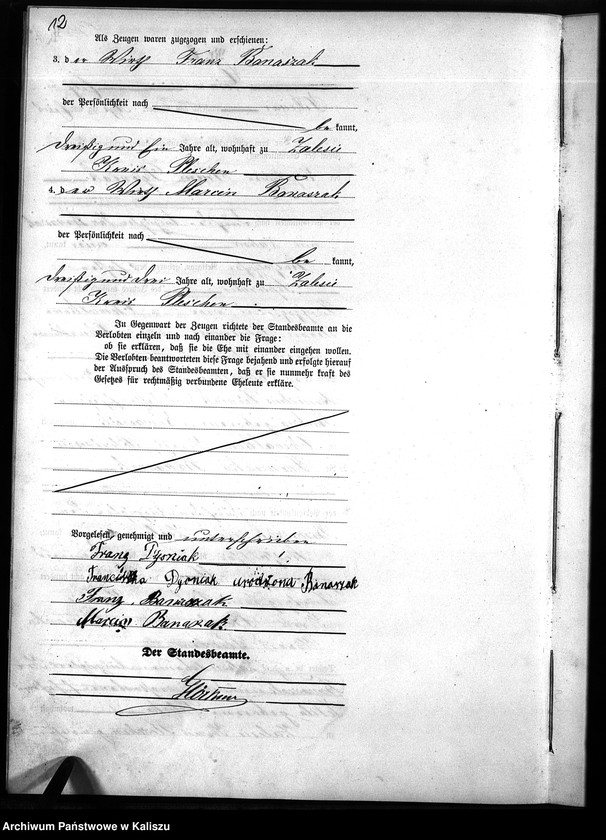 12
Als Zeugen waren zugezogen und erschienen:
3. der Wirth Franz Banaszak
der Persönlichkeit nach
be kannt,
dreißig und ein Jahre alt, wohnhaft zu Zalesie
Kreis Pleschen
4. der Wirth Marcin Banaszak
der Persönlichkeit nach
be kannt,
dreißig und drei Jahre alt, wohnhaft zu Zalesie
Kreis Pleschen.
In Gegenwart der Zeugen richtete der Standesbeamte an die
Verlobten einzeln und nach einander die Frage:
ob sie erklären, daß sie die Ehe mit einander eingehen wollen.
Die Verlobten beantworteten diese Frage bejahend und erfolgte hierauf
der Ausspruch des Standesbeamten, daß er sie nunmehr kraft des
Gesetzes für rechtmäßig verbundene Eheleute erkläre.
Vorgelesen, genehmigt und unterschrieben
Franz Dyoniak
Franciszka Dyoniak urodzona Banaszak
Franz Banaszak
Marcin Banazak
Der Standesbeamte.
Archiwum Państwowe w Kaliszu